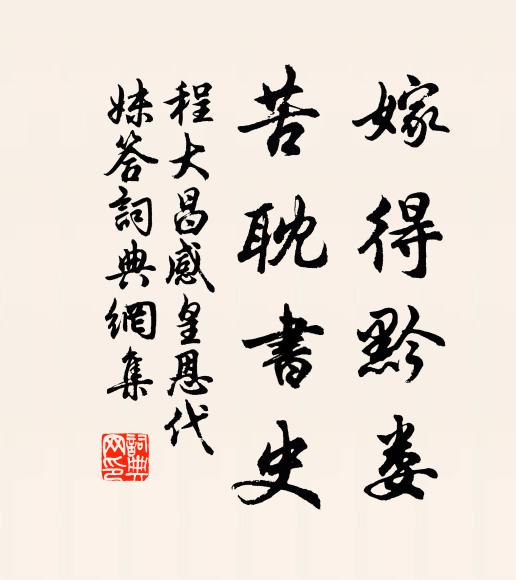 嫁得黔娄
苦耽書史
程大昌感皇恩代
妹答詞典網集
詞典网印